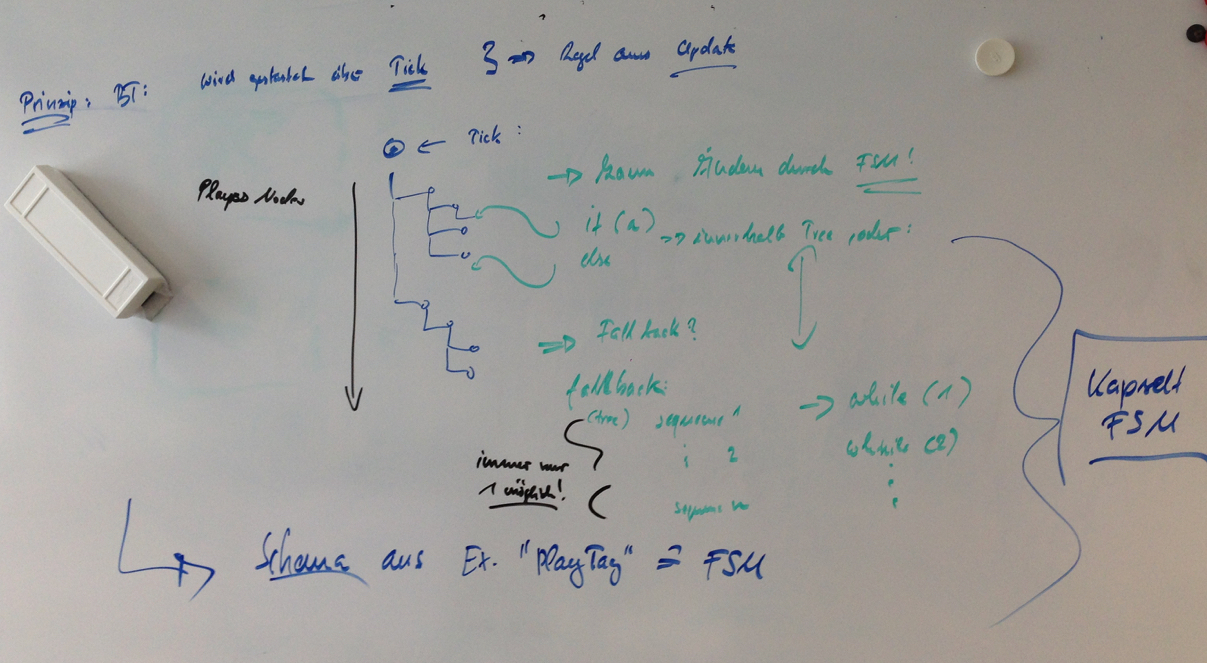 Prinzip: BT: wird gestartet über Tick } => Regel aus Update
← Tick:
→ Kann Ändern durch FSM!
if (a) => innerhalb Tree oder:
else
=> Fallback?
fallback:
(tree) sequence 1
: 2
sequence
→ while (1)
while (2)
:
immer nur
1 möglich!
Kapselt
FSM
Schema aus Ex. "PlayTag" ≙ FSM